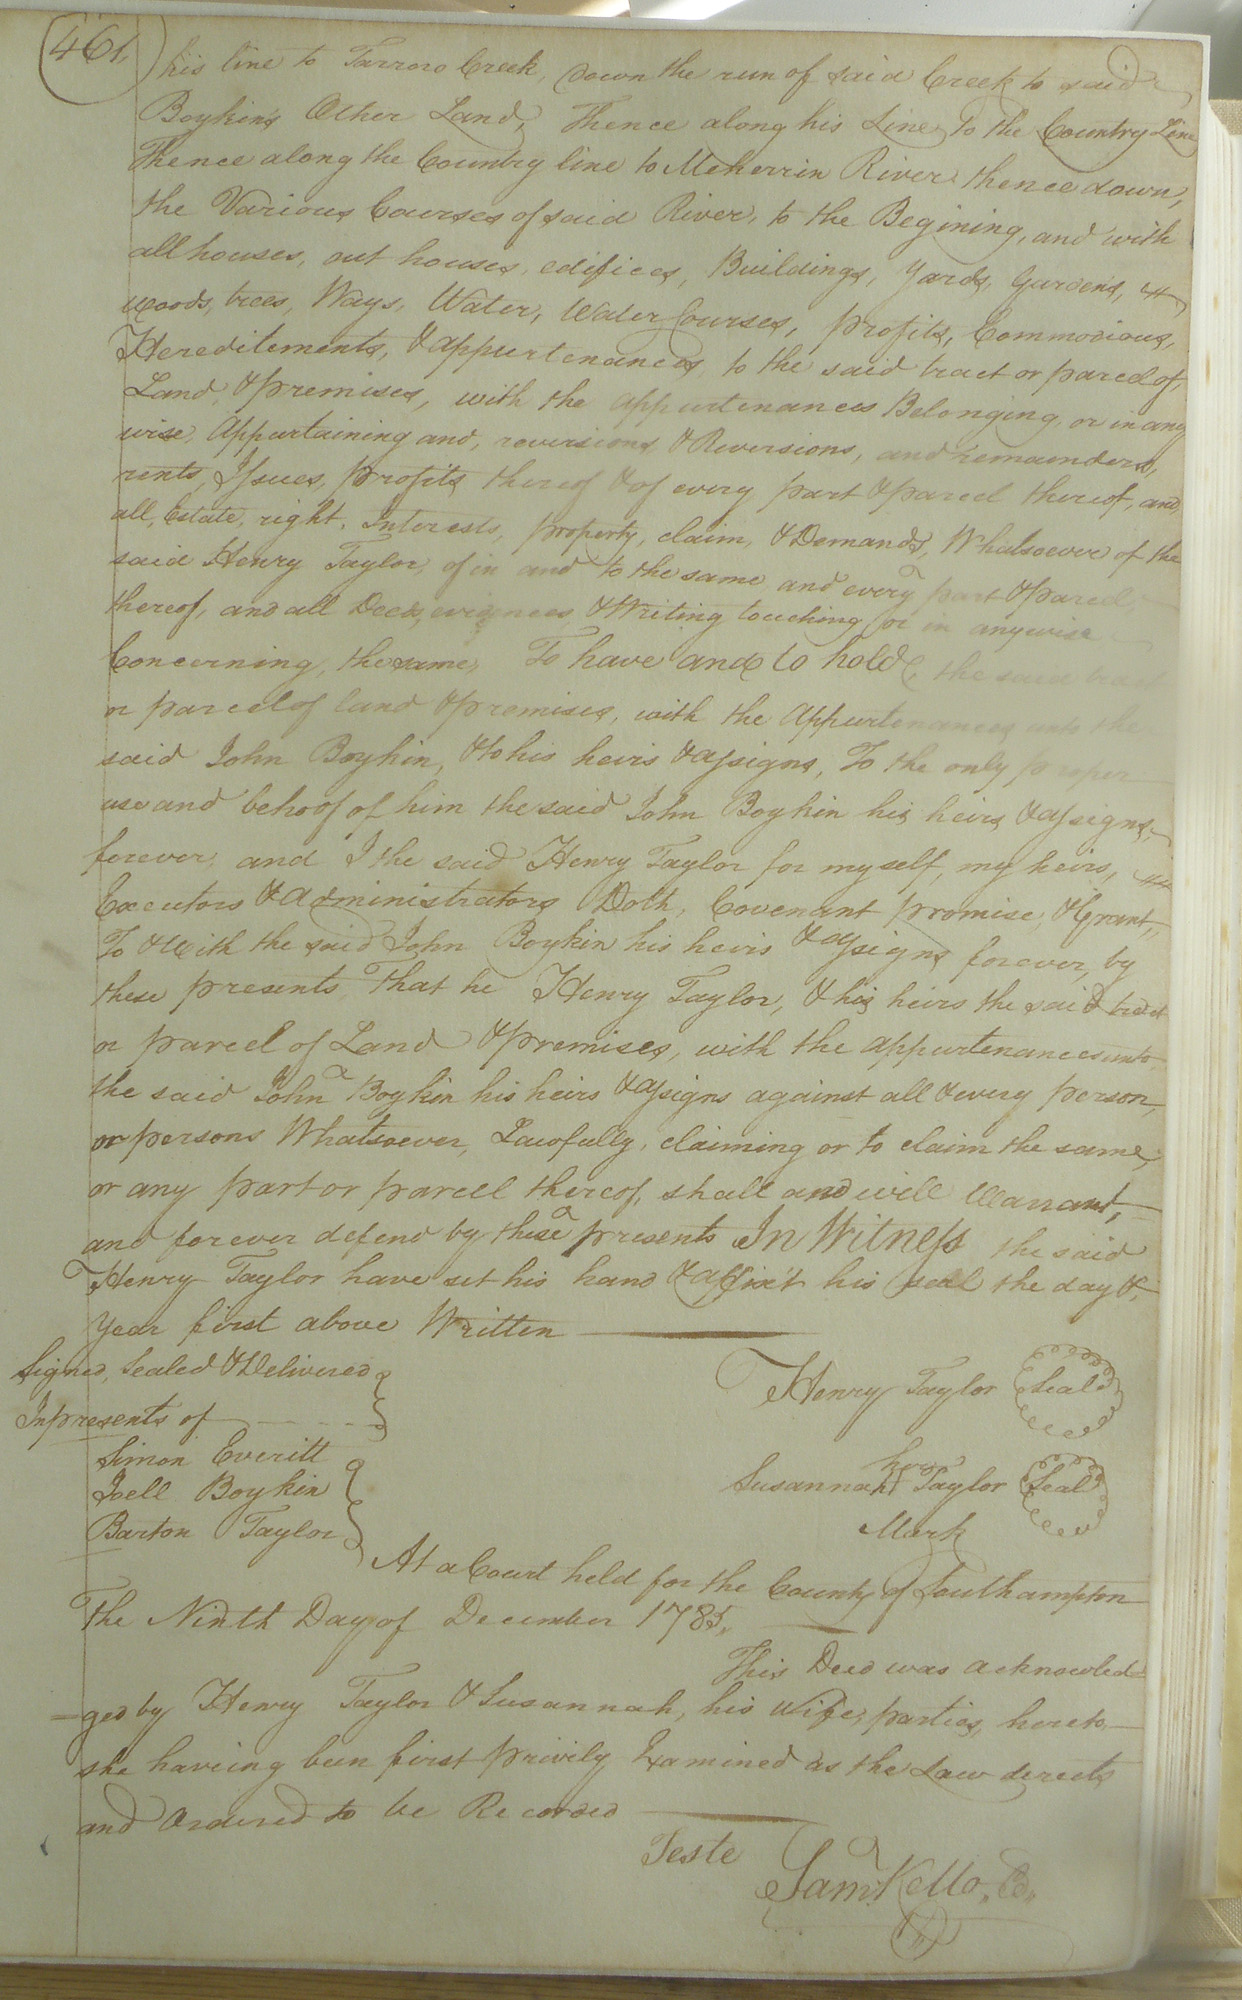 461,
his line to Tarroro Creek, down the run of said Creek to said
Boykins Other Land, Thence along his Line, To the Country Line
Thence along the Country line to Meherrin River thence down,
the Various Courses of said River, to the Begining, and with
all houses, out houses, edifices, Buildings, Yards, Gardens,
woods, trees, Ways, Water, Water Courses, profits, Commodious,
Hereditements, & appurtenances to the said tract or parcel of,
Land & premises, with the appurtenances Belonging, or in any
wise, Appurtaining and, reversions & Reversions, and remainders,
rents, Issues, profits thereof & of every part & parcel thereof, and
all, Estate, right, Interests, property, claim, & Demands, Whatsoever of the
said Henry Taylor, of in and to the same and every part & parcel
thereof, and all Deeds, evidences & Writing touching or in anywise
Concerning, the same, To have and to hold, the said tract
or parcel of land & premises, with the appurtenances unto the
said John Boykin, & to his heirs & assigns, To the only proper
use and behoof of him the said John Boykin his heirs & assigns,
forever, and I the said Henry Taylor for myself, my heirs,
Executors & administrators Doth, Covenant promise, & Grant,
To & With the said John Boykin his heirs & assigns forever, by
these presents That he Henry Taylor, & his heirs the said tract
or parcel of Land & premises, with the appurtenances unto
the said John Boykin his heirs & assigns against all & every person,
or persons Whatsoever, Lawfully, claiming or to claim the same,
or any part or parcell thereof, shall and will Warrant,
and forever defend by these presents In Witness the said
Henry Taylor have set his hand & affix't his seal the day &
year first above Written
Signed, Sealed & Delivered
In presents of
Simon Everitt
Joell Boykin
Barton Taylor
Henry Taylor Seal
her
Susannah Taylor Seal
Mark
At a Court held for the County of Southampton
The Ninth Day of December 1785,
This Deed was acknowled-
-ged by Henry Taylor & Susannah, his wife, parties, hereto,
she haveing been first privily Examined as the Law derects
and Ordered to be Recorded
Teste
Saml. Kello,